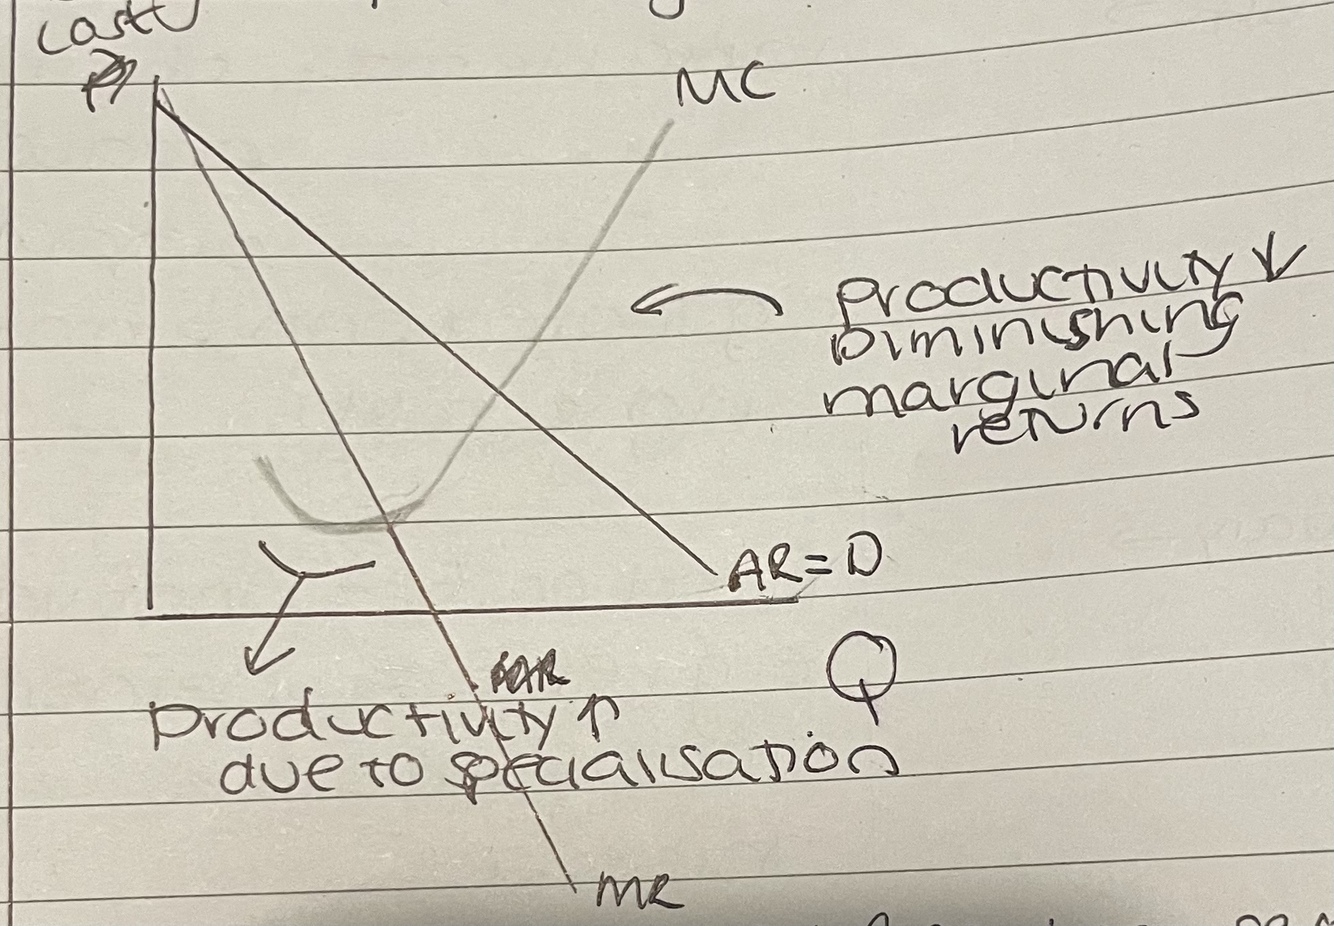 Cost
MC
productivity ↓
Diminishing
marginal
returns
AR = D
Q
productivity ↑
due to specialisation
MR